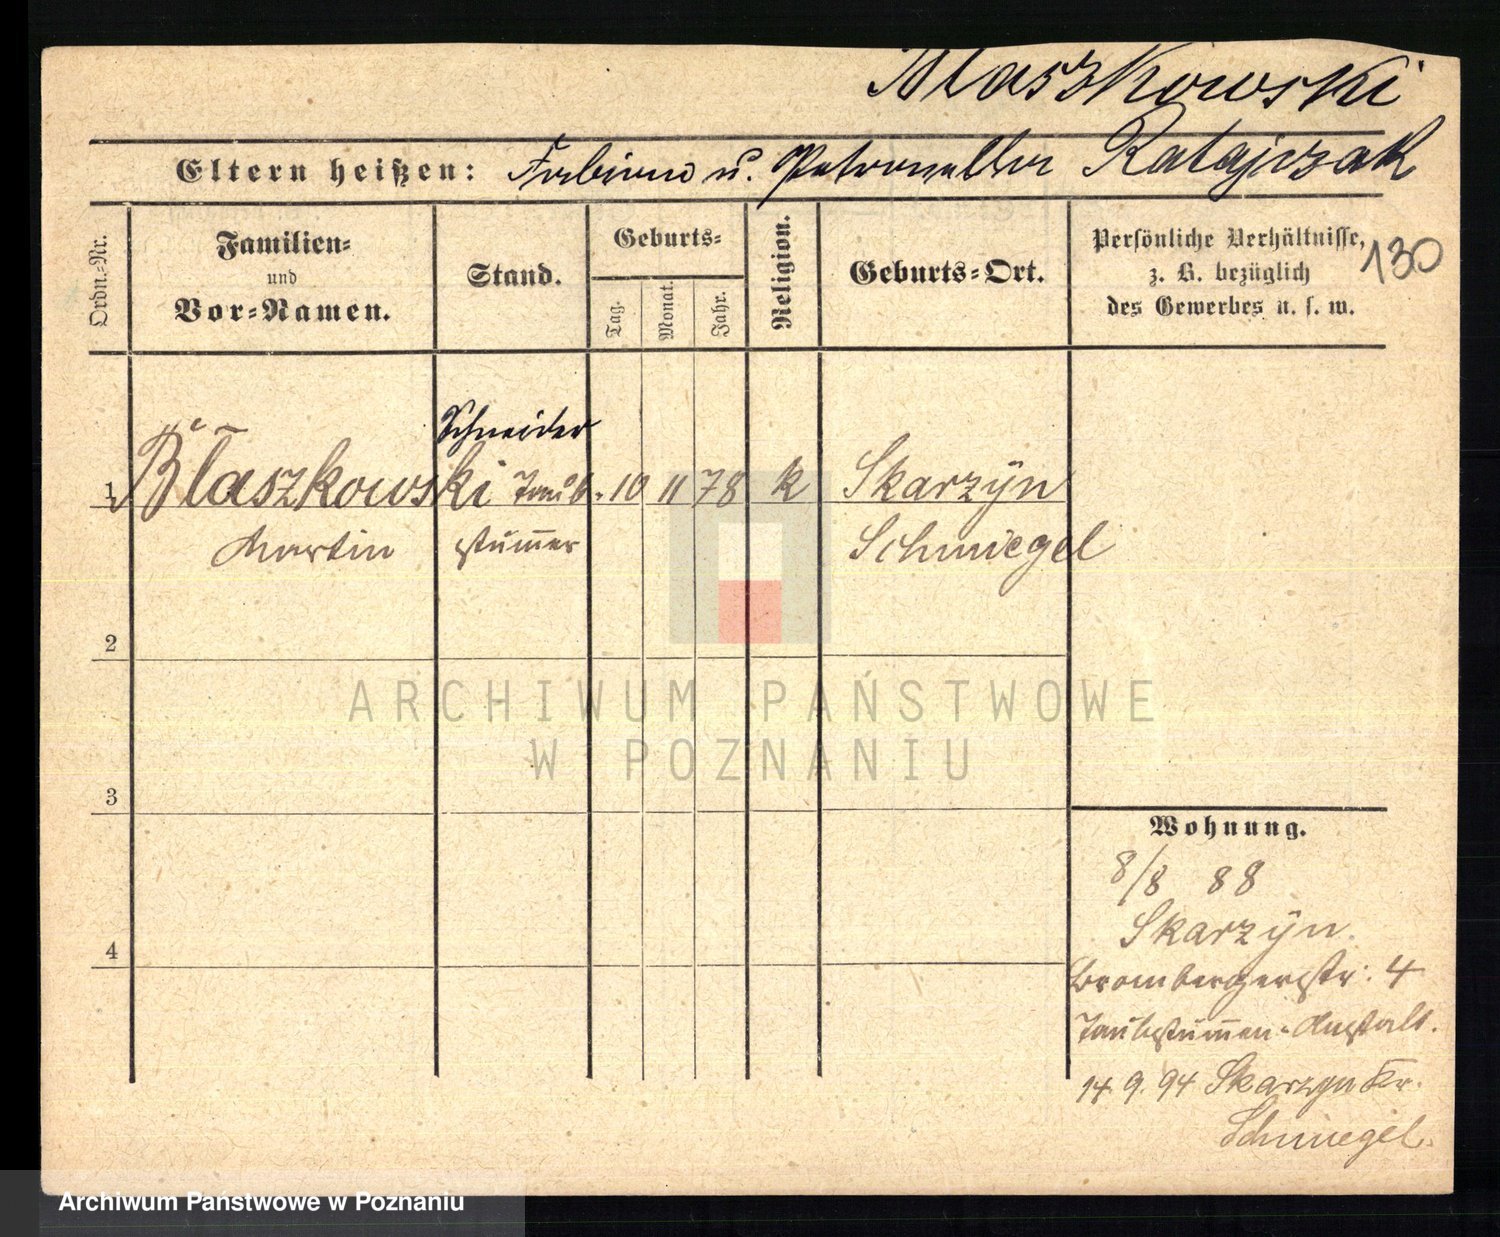 Błaszkowski
Eltern heißen: Fabian u. Petronella Ratajczak
130
Ordn.-Nr.
Familien-
und
Vor-Namen.
Stand.
Geburts-
Tag.
Monat.
Jahr.
Religion.
Geburts-Ort.
Persönliche Verhältnisse,
z. B. bezüglich
des Gewerbes u. s. w.
Schneider
1 Błaszkowski Taub- 10 11 78 k Skarzyn
Martin stummer Schmiegel
2
3
4
Wohnung.
8/8 88
Skarzyn.
Brombergerstr. 4
Taubstummen-Anstalt.
14. 9. 94 Skarzyn Kr.
Schmiegel.
ARCHIWUM PAŃSTWOWE
W POZNANIU
Archiwum Państwowe w Poznaniu